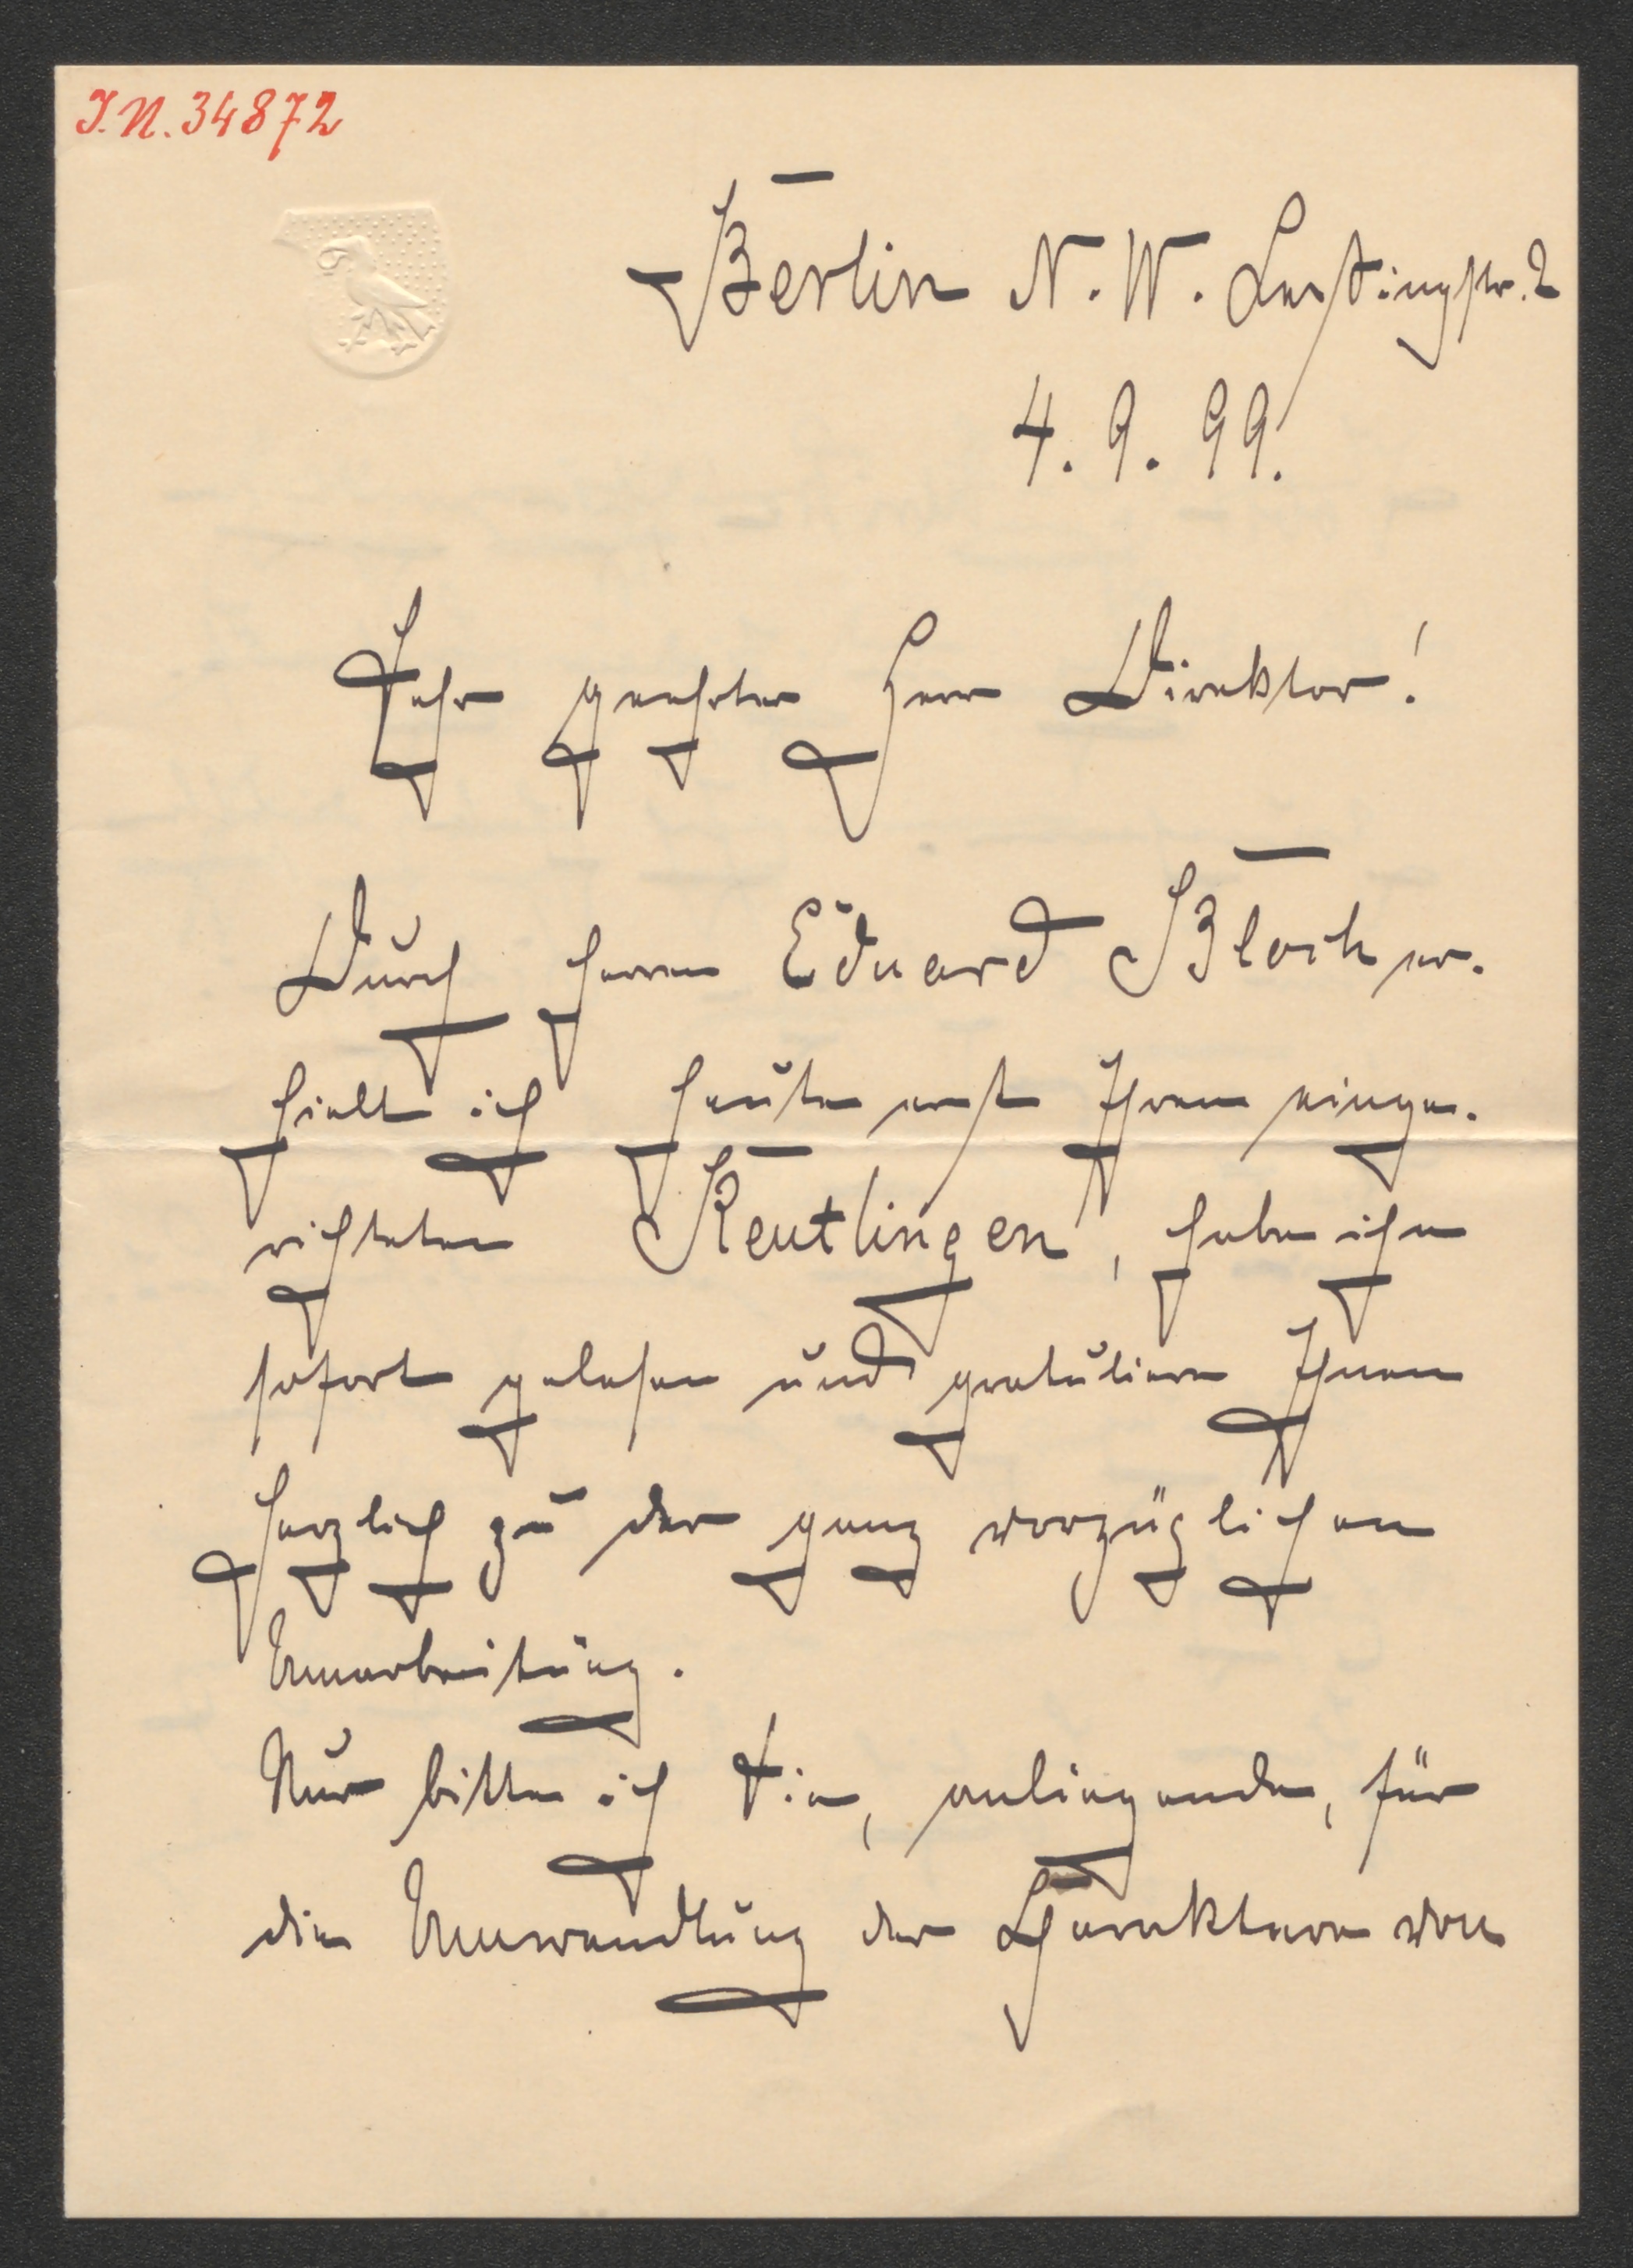 J.N. 34872
Berlin N.W. Lessingstr. 2
4. 9. 99.
Sehr geehrter Herr Direktor!
Durch Herrn Eduard Bloch er-
hielt ich heute erst Ihren einge-
richteten Reutlingen, habe ihn
sofort gelesen und gratuliere Ihnen
herzlich zu der ganz vorzüglichen
Umarbeitung.
Nur bitte ich Sie, anliegende, für
die Umwandlung der Charaktere von